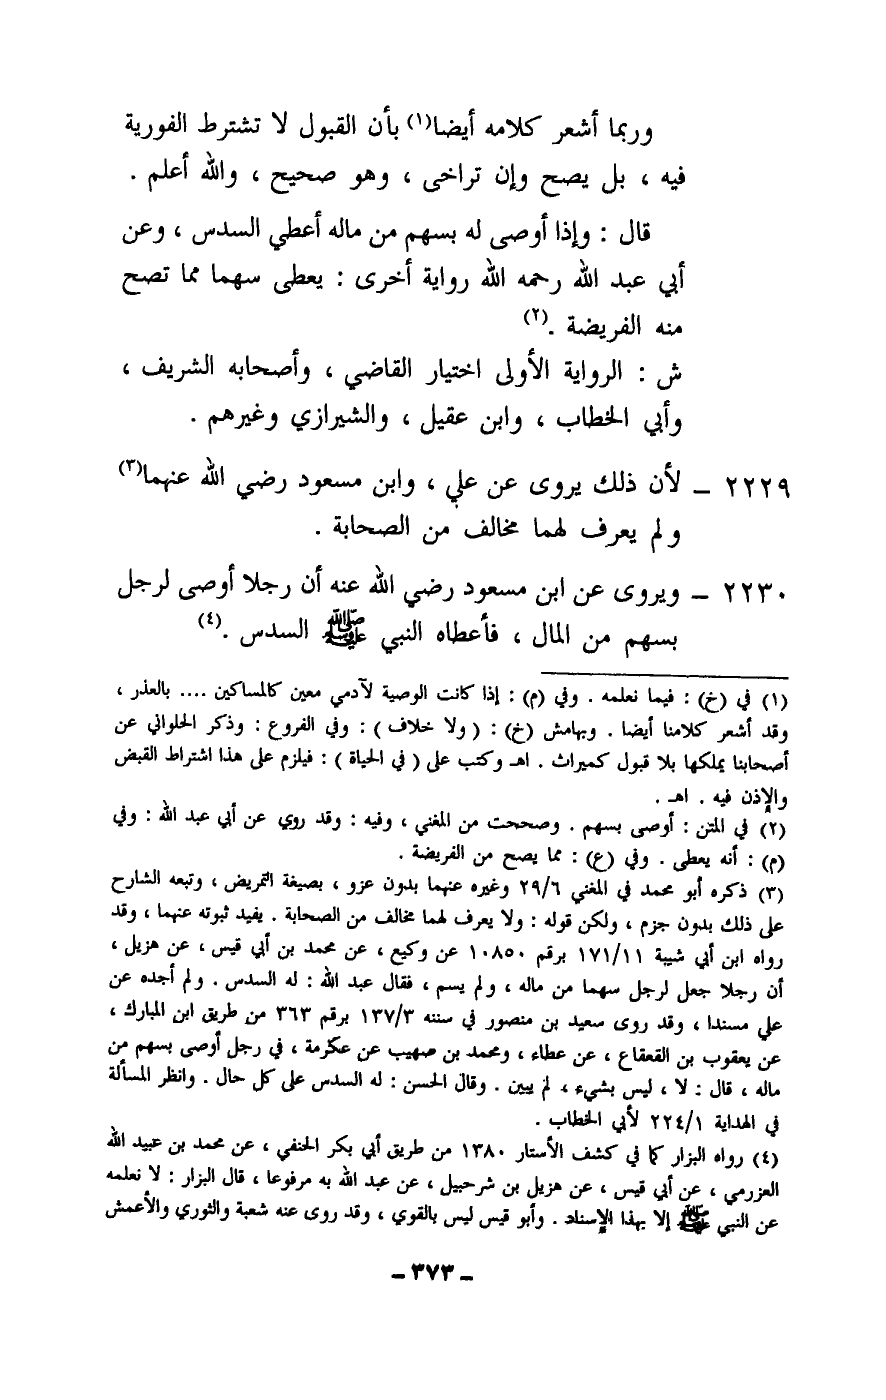 وربما أشعر كلامه أيضا(١) بأن القبول لا تشترط الفورية
فيه ، بل يصح وإن تراخى ، وهو صحيح ، والله أعلم .
قال : وإذا أوصى له بسهم من ماله أعطي السدس ، وعن
أبي عبد الله رحمه الله رواية أخرى : يعطى سهما مما تصح
منه الفريضة .(٢)
ش : الرواية الأولى اختيار القاضي ، وأصحابه الشريف ،
وأبي الخطاب ، وابن عقيل ، والشيرازي وغيرهم .
٢٢٢٩ – لأن ذلك يروى عن علي ، وابن مسعود رضي الله عنهما(٣)
ولم يعرف لهما مخالف من الصحابة .
٢٢٣٠ – ويروى عن ابن مسعود رضي الله عنه أن رجلا أوصى لرجل
بسهم من المال ، فأعطاه النبي ﷺ السدس .(٤)
(١) في (خ) : فيما نعلمه . وفي (م) : إذا كانت الوصية لآدمي معين كالمساكين .... بالعذر ،
وقد أشعر كلامنا أيضا . وبهامش (خ) : ( ولا خلاف ) : وفي الفروع : وذكر الحلواني عن
أصحابنا يملكها بلا قبول كميراث . اهـ وكتب على ( في الحياة ) : فيلزم على هذا اشتراط القبض
والإذن فيه . اهـ .
(٢) في المتن : أوصى بسهم . وصححت من المغني ، وفيه : وقد روي عن أبي عبد الله : وفي
(م) : أنه يعطى . وفي (ع) : مما يصح من الفريضة .
(٣) ذكره أبو محمد في المغني ٢٩/٦ وغيره عنهما بدون عزو ، بصيغة التمريض ، وتبعه الشارح
على ذلك بدون جزم ، ولكن قوله : ولا يعرف لهما مخالف من الصحابة . يفيد ثبوته عنهما ، وقد
رواه ابن أبي شيبة ١٧١/١١ برقم ١٠٨٥٠ عن وكيع ، عن محمد بن أبي قيس ، عن هزيل ،
أن رجلا جعل لرجل سهما من ماله ، ولم يسم ، فقال عبد الله : له السدس . ولم أجده عن
علي مسندا ، وقد روى سعيد بن منصور في سننه ١٣٧/٣ برقم ٣٦٣ من طريق ابن المبارك ،
عن يعقوب بن القعقاع ، عن عطاء ، ومحمد بن صهيب عن عكرمة ، في رجل أوصى بسهم من
ماله ، قال : لا ، ليس بشيء ، لم يبين . وقال الحسن : له السدس على كل حال . وانظر المسألة
في الهداية ٢٢٤/١ لأبي الخطاب .
(٤) رواه البزار كما في كشف الأستار ١٣٨٠ من طريق أبي بكر الحنفي ، عن محمد بن عبيد الله
العزرمي ، عن أبي قيس ، عن هزيل بن شرحبيل ، عن عبد الله به مرفوعا ، قال البزار : لا نعلمه
عن النبي ﷺ إلا بهذا الإسناد . وأبو قيس ليس بالقوي ، وقد روى عنه شعبة والثوري والأعمش
– ٣٧٣ –